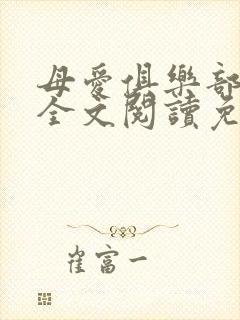 母愛俱樂部
全文閱讀免
崔富一